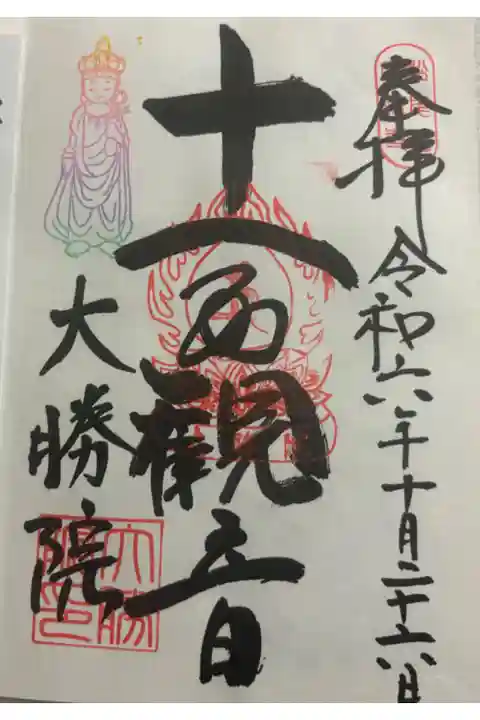 奉拝
令和六年十月二十六日
十一面観音
大勝院